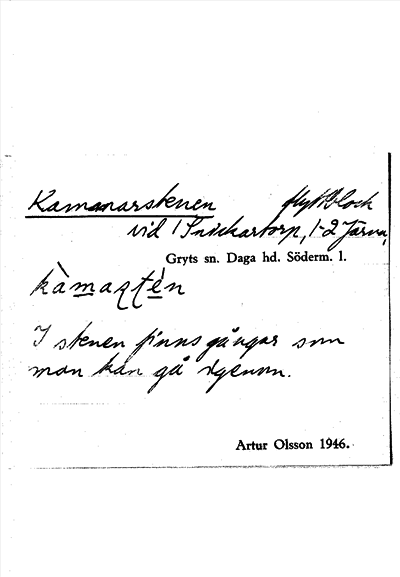 Kamanarstenen flyttblock
vid 1 Snickartorp, 1-2 Järna,
Gryts sn. Daga hd. Söderm. l.
kàmaʂʈén
I stenen finns gångar som
man kan gå igenom.
Artur Olsson 1946.